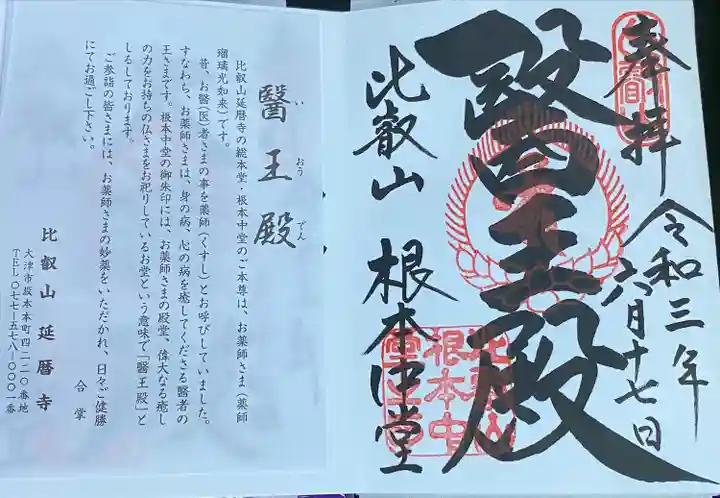 奉拝
令和三年
六月十七日
醫王殿
比叡山 根本中堂
比叡山
根本中
堂之印
醫王殿
い おう でん
比叡山延暦寺の総本堂・根本中堂のご本尊は、お薬師さま(薬師
瑠璃光如来)です。
昔、お醫(医)者さまの事を薬師(くすし)とお呼びしていました。
すなわち、お薬師さまは、身の病、心の病を癒してくださる醫者の
王さまです。根本中堂の御朱印には、お薬師さまの殿堂、偉大なる癒し
の力をお持ちの仏さまをお祀りしているお堂という意味で「醫王殿」と
しるしております。
ご参詣の皆さまには、お薬師さまの妙薬をいただかれ、日々ご健勝
にてお過ごし下さい。
合掌
比叡山延暦寺
大津市坂本本町四二二〇番地
TEL〇七七-五七八-〇〇〇一番